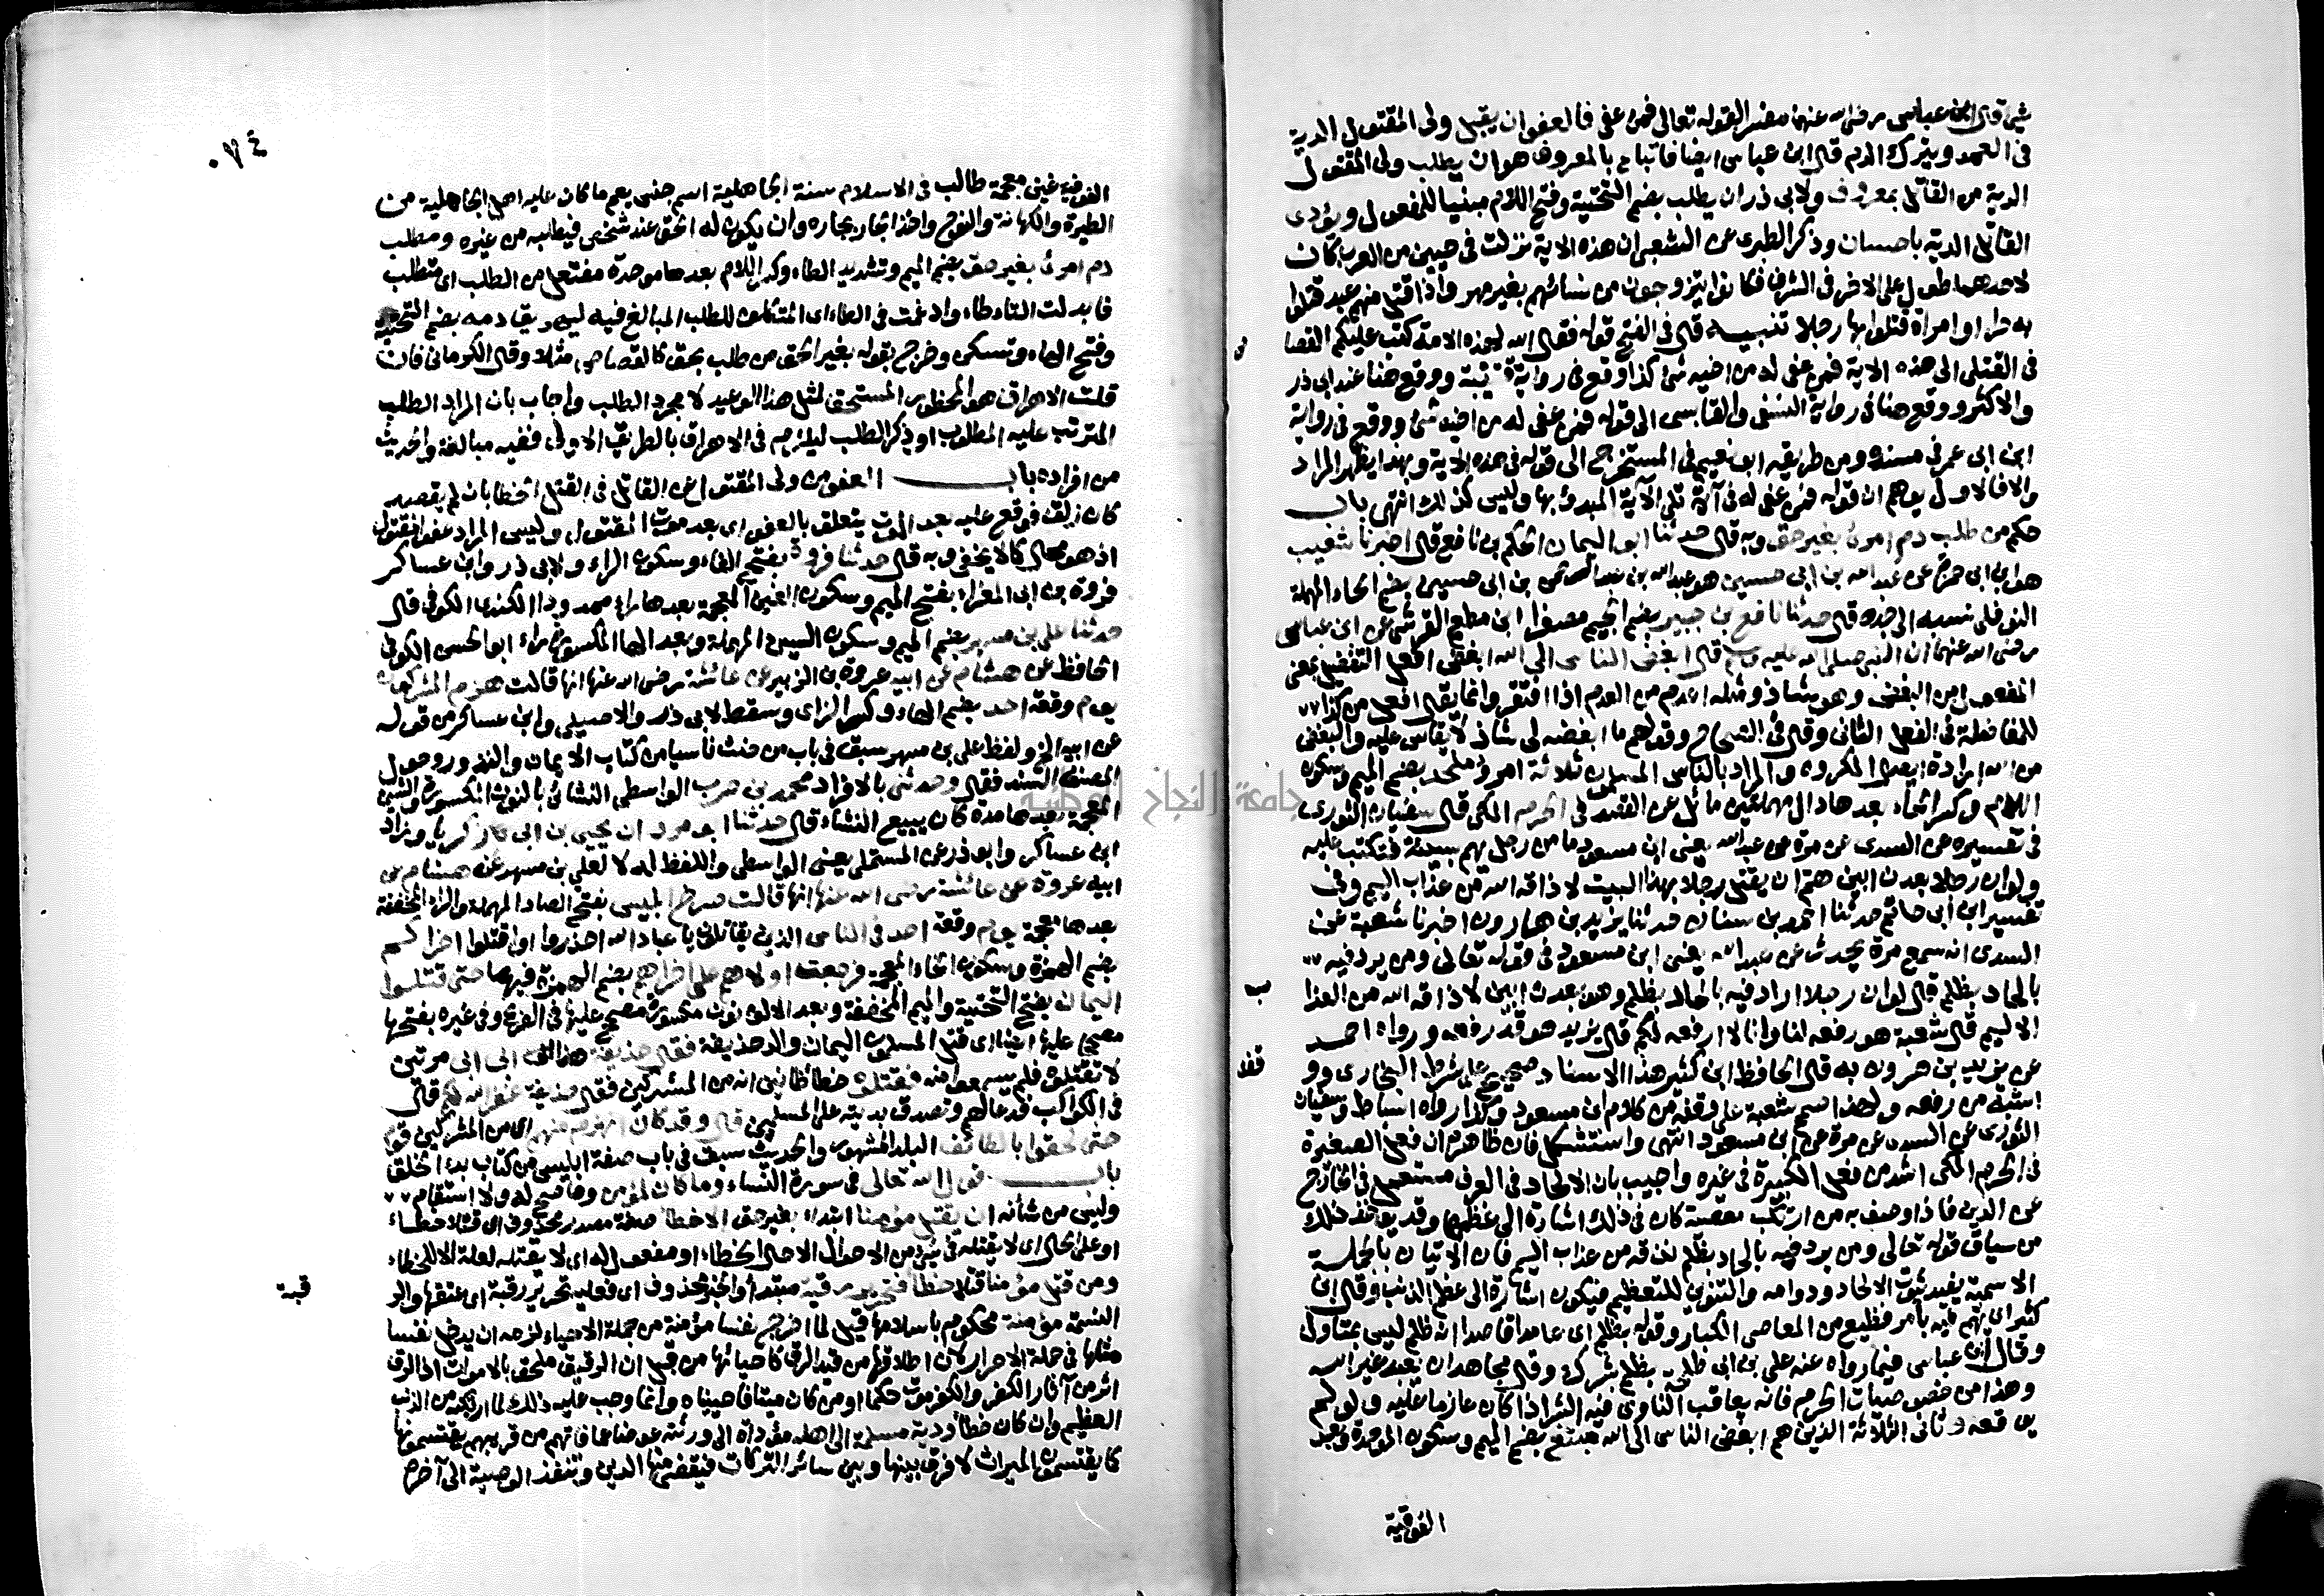 شيئا قال ابن عباس رضى الله عنهما مفسرا لقوله تعالى فمن عفى فالعفو ان يقبل ولى المقتول الدية
فى العمد ويترك الدم قال ابن عباس ايضا فاتباع بالمعروف هو ان يطلب ولى المقتول
الدية من القاتل بمعروف ولابى ذر ان يطلب بضم التحتية وفتح اللام مبنيا للمفعول ويؤدى
القاتل الدية باحسان وذكر الطبرى عن الشعبى ان هذه الاية نزلت فى حيين من العرب كان
لاحدهما طول على الاخر فى الشرف فكانوا يتزوجون من نسائهم بغير مهر واذا قتل منهم عبد قتلوا
به حرا او امراة قتلوا بها رجلا تنبيه قال فى الفتح قوله فقال الله لهذه الامة كتب عليكم القصا
ص
فى القتلى الى هذه الاية فمن عفى له من اخيه شئ كذا وقع فى رواية قتيبة ووقع هنا عند ابى ذر
والاكثر ووقع هنا فى رواية النسفى والقابسى الى قوله فمن عفى له من اخيه شئ ووقع فى رواية
ابن ابى عمر فى مسنده ومن طريقه ابو نعيم فى المستخرج الى قوله فى هذه الاية وبهذا يظهر المراد
والا فالاول يوهم ان قوله فمن عفى له فى آية تلى الآية المبدؤ بها وليس كذلك انتهى باب
حكم من طلب دم امرئ بغير حق وبه قال حدثنا ابو اليمان الحكم بن نافع قال اخبرنا شعيب
هو ابن ابى حمزة عن عبد الله بن ابى حسين هو عبد الله بن عبد الرحمن بن ابى حسين بضم الحاء المهملة
النوفلى نسبه الى جده قال حدثنا نافع بن جبير بضم الجيم مصغرا ابن مطعم القرشى عن ابن عباس
رضى الله عنهما ان النبى صلى الله عليه وسلم قال ابغض الناس الى الله ابغض افعل التفضيل بمعنى
المفعول من البغض وهو شاذ ومثله اعدم من العدم اذا افتقر وانما يقال افعل من كذا
للمفاضلة فى الفعل الثانى وقال فى الصحاح وقولهم ما ابغضه لى شاذ لا يقاس عليه والبغض
من الله ارادة ايصال المكروه والمراد بالناس المسلمون ثلاثة امرؤ ملحد بضم الميم وسكون
اللام وكسر الحاء بعدها دال مهملتين مائل عن القصد فى الحرم المكى قال سفيان الثورى
فى تفسيره عن السدى عن مرة عن عبد الله يعنى ابن مسعود ما من رجل يهم بسيئة فتكتب عليه
ولو ان رجلا بعدن ابين هم ان يقتل رجلا بهذا البيت لاذاقه الله من عذاب اليم وفى
تفسير ابن ابى حاتم حدثنا احمد بن سنان حدثنا يزيد بن هارون اخبرنا شعبة عن
السدى انه سمع مرة يحدث عن عبد الله يعنى ابن مسعود فى قوله تعالى ومن يرد فيه
بالحاد بظلم قال لو ان رجلا اراد فيه بالحاد بظلم وهو بعدن ابين لاذاقه الله من العذا
ب
الاليم قال شعبة هو رفعه لنا وانا لا ارفعه لكم قال يزيد هو قد رفعه ورواه احمد
عن يزيد بن هرون به قال الحافظ ابن كثير هذا الاسناد صحيح على شرط البخارى وو
قفه
اشبه من رفعه ولهذا صمم شعبة على وقفه من كلام ابن مسعود وكذا رواه اسباط وسفيان
الثورى عن السدى عن مرة عن ابن مسعود انتهى واستشكل فان ظاهره ان فعل الصغيرة
فى الحرم المكى اشد من فعل الكبيرة فى غيره واجيب بان الالحاد فى العرف مستعمل فى الخارج
عن الدين فاذا وصف به من ارتكب معصية كان فى ذلك اشارة الى عظمها وقد يؤخذ ذلك
من سياق قوله تعالى ومن يرد فيه بالحاد بظلم نذقه من عذاب اليم فان الاتيان بالجملة
الاسمية يفيد ثبوت الالحاد ودوامه والتنوين للتعظيم فيكون اشارة الى عظم الذنب وقال ابن
كثير اى يهم فيه بامر فظيع من المعاصى الكبار وقوله بظلم اى عامدا قاصدا انه ظلم ليس بمتاول
وقال ابن عباس فيما رواه عنه على بن ابى طلحة بظلم بشرك وقال مجاهد ان يعبد غير الله
وهذا من خصوصيات الحرم فانه يعاقب الناوى فيه الشر اذا كان عازما عليه ولو لم
يوقعه وثانى الثلاثة الذين هم ابغض الناس الى الله مبتغ بضم الميم وسكون الموحدة وبعد
الفوقية
٠٧٤
الفوقية غين معجمة طالب فى الاسلام سنة الجاهلية اسم جنس يعم ما كان عليه اهل الجاهلية من
الطيرة والكهانة والنوح واخذ الجار بجاره وان يكون له الحق عند شخص فيطلبه من غيره ومطلب
دم امرئ بغير حق بضم الميم وتشديد الطاء وكسر اللام بعدها موحدة مفتعل من الطلب اى متطلب
فابدلت التاء طاء وادغمت فى الطاء اى المتكلف للطلب المبالغ فيه ليهريق دمه بضم التحتية
وفتح الهاء وتسكن وخرج بقوله بغير الحق من طلب بحق كالقصاص مثلا وقال الكرمانى فان
قلت الاهراق هو المحظور المستحق لمثل هذا الوعيد لا مجرد الطلب واجاب بان المراد الطلب
المترتب عليه المطلوب او ذكر الطلب ليلزم فى الاهراق بالطريق الاولى ففيه مبالغة والحديث
من افراده باب العفو من ولى المقتول عن القاتل فى القتل الخطا بان لم يقصد
كان زلق فوقع عليه بعد الموت يتعلق بالعفو اى بعد موت المقتول وليس المراد عفو المقتول
اذ هو محال كما لا يخفى وبه قال حدثنا فروة بفتح الفاء وسكون الراء ولابى ذر وابن عساكر
فروة بن ابى المغراء بفتح الميم وسكون الغين المعجمة بعدها راء ممدودا الكندى الكوفى قال
حدثنا على بن مسهر بضم الميم وسكون السين المهملة وبعد الهاء المكسورة راء ابو الحسن الكوفى
الحافظ عن هشام عن ابيه عروة بن الزبير عن عائشة رضى الله عنها انها قالت هزم المشركون
يوم وقعة احد بضم الهاء وكسر الزاى وسقط لابى ذر والاصيلى وابن عساكر من قوله
عن ابيه الخ ولفظ على بن مسهر سبق فى باب من حنث ناسيا من كتاب الايمان والنذور وحول
المصنف السند فقال وحدثنى بالافراد محمد بن حرب الواسطى النشائى بالنون المكسورة والشين
المعجمة بعدها مدة كان يبيع النشاء قال حدثنا ابو مروان يحيى بن ابى زكريا وزاد
ابن عساكر وابو ذر عن المستملى يعنى الواسطى واللفظ له لا لعلى بن مسهر عن هشام عن
ابيه عروة عن عائشة رضى الله عنها انها قالت صرخ ابليس بفتح الصاد المهملة والراء المخففة
بعدها معجمة يوم وقعة احد فى الناس الذين يقاتلون يا عباد الله احذروا او اقتلوا اخراكم
بضم الهمزة وسكون الخاء المعجمة فرجعت اولاهم على اخراهم بضم الهمزة فيهما حتى قتلوا
اليمان بفتح التحتية والميم المخففة وبعد الالف نون مكسورة مصحح عليها فى الفرع وفى غيره بفتحها
مصحح عليه ايضا اى قتل المسلمون اليمان والد حذيفة فقال حذيفة هذا ابى ابى مرتين
لا تقتلوه فلم يسمعوا منه فقتلوه خطأ ظانين انه من المشركين فقال حذيفة غفر الله لكم قال
فى الكواكب فدعا لهم وتصدق بديته على المسلمين قال وقد كان انهزم منهم اى من المشركين قوم
حتى لحقوا بالطائف البلد المشهور والحديث سبق فى باب صفة ابليس من كتاب بدء الخلق
باب قول الله تعالى فى سورة النساء وما كان لمؤمن وما صح له ولا استقام
وليس من شأنه ان يقتل مؤمنا ابتداء بغير حق الا خطأ صفة مصدر محذوف اى قتلا خطاء
او على الحال اى لا يقتله فى شئ من الاحوال الا حال الخطاء او مفعول له اى لا يقتله لعلة الا للخطاء
ومن قتل مؤمنا قتلا خطأ فتحرير رقبة مبتدأ والخبر محذوف اى فعليه تحرير رقبة اى عتقها والر
قبة
النسمة مؤمنة محكوم باسلامها قيل لما اخرج نفسا مؤمنة من جملة الاحياء لزمه ان يدخل نفسا
مثلها فى جملة الاحرار لان اطلاقها من قيد الرق كاحيائها من قبل ان الرقيق ملحق بالاموات اذ الرق
اثر من آثار الكفر والكفر موت حكما او من كان ميتا فاحييناه وانما وجب عليه ذلك لما ارتكبه من الذنب
العظيم وان كان خطأ ودية مسلمة الى اهله مؤداة الى ورثته عوضا عما فاتهم من قريبهم يقتسمونها
كما يقتسمون الميراث لا فرق بينها وبين سائر التركات فيقضى منها الدين وتنفذ الوصية الى آخره
جامعة النجاح الوطنية